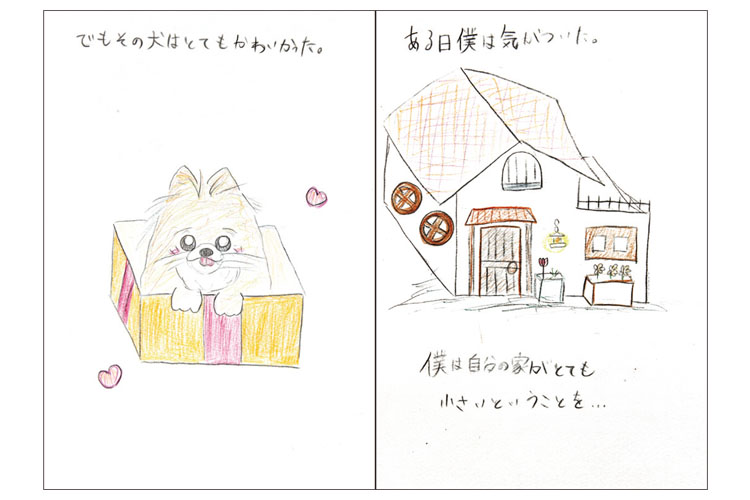 でもその犬はとてもかわいかった。
ある日僕は気がついた。
僕は自分の家がとても
小さいということを...